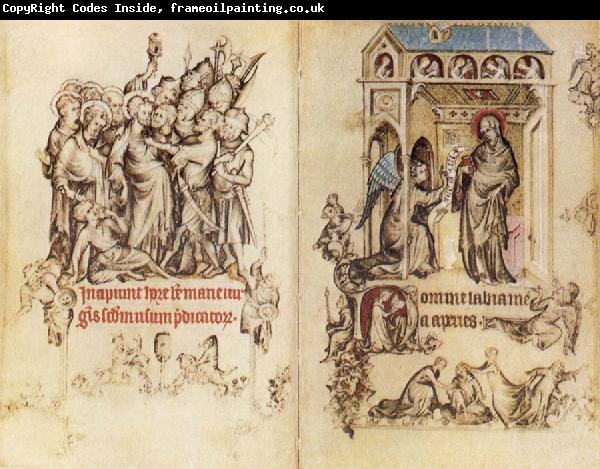 CopyRight Codes Inside, frameoilpainting.co.uk
Incipiunt hore be marie vir
gis scdm usum pdicator.
Domine labia me
a aperies.